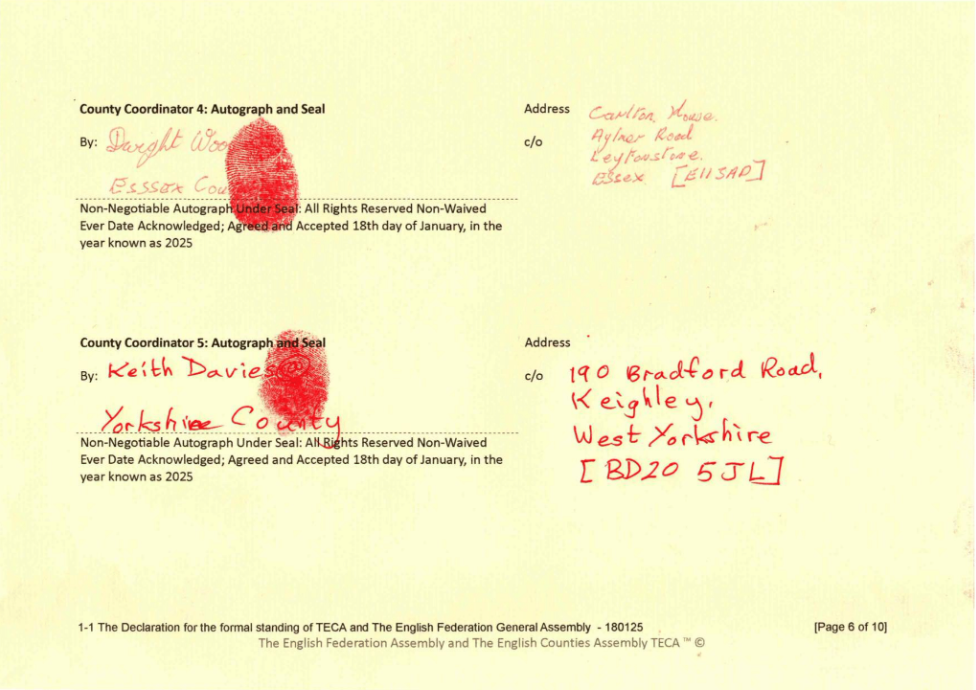 County Coordinator 4: Autograph and Seal
Address
Carlton House.
By: Dwight
c/o
Aylmer Road
Leytonstone.
Esssex
Essex [E113AD]
Non-Negotiable Autograph Under Seal: All Rights Reserved Non-Waived
Ever Date Acknowledged; Agreed and Accepted 18th day of January, in the
year known as 2025
County Coordinator 5: Autograph and Seal
Address
By: Keith Davies
c/o
190 Bradford Road,
Keighley,
Yorkshire County
West Yorkshire
[BD20 5JL]
Non-Negotiable Autograph Under Seal: All Rights Reserved Non-Waived
Ever Date Acknowledged; Agreed and Accepted 18th day of January, in the
year known as 2025
1-1 The Declaration for the formal standing of TECA and The English Federation General Assembly - 180125
[Page 6 of 10]
The English Federation Assembly and The English Counties Assembly TECA ™ ©